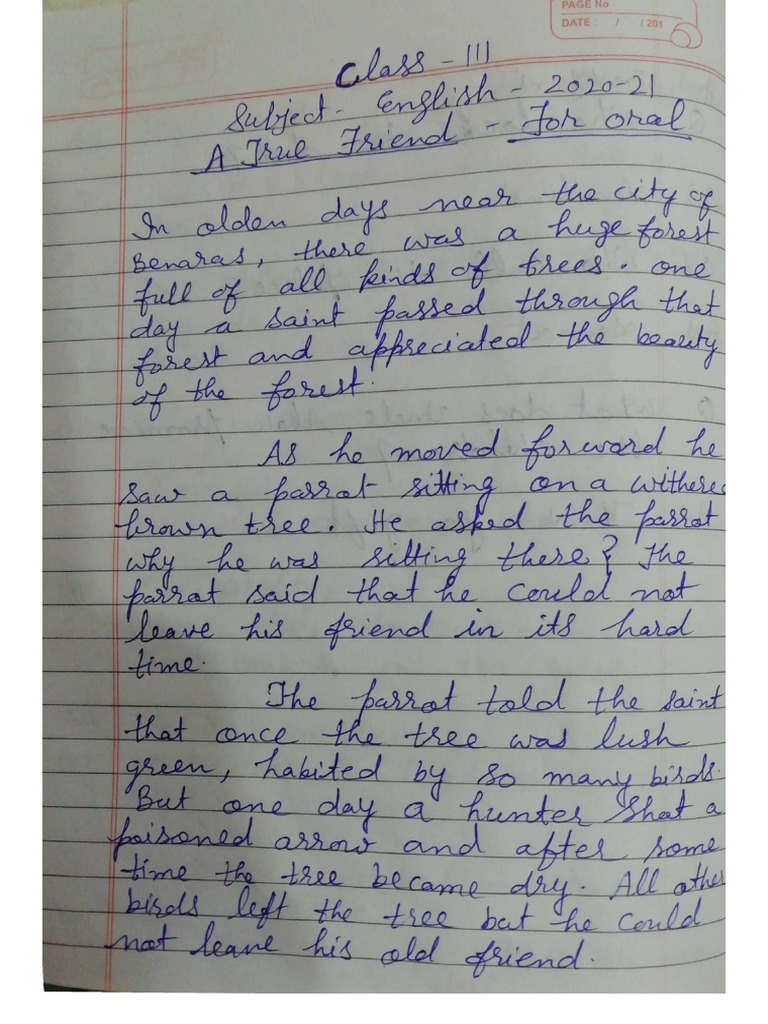 PAGE No
DATE : / / 201
Class - III
Subject - English - 2020-21
A True Friend - For oral
In olden days near the city of
Benaras, there was a huge forest
full of all kinds of trees. one
day a saint passed through that
forest and appreciated the beauty
of the forest.
As he moved forward he
saw a parrot sitting on a withere
brown tree. He asked the parrot
why he was sitting there? The
parrot said that he could not
leave his friend in its hard
time.
The parrot told the saint
that once the tree was lush
green, habited by so many birds.
But one day a hunter shot a
poisoned arrow and after some
time the tree became dry. All other
birds left the tree but he could
not leave his old friend.